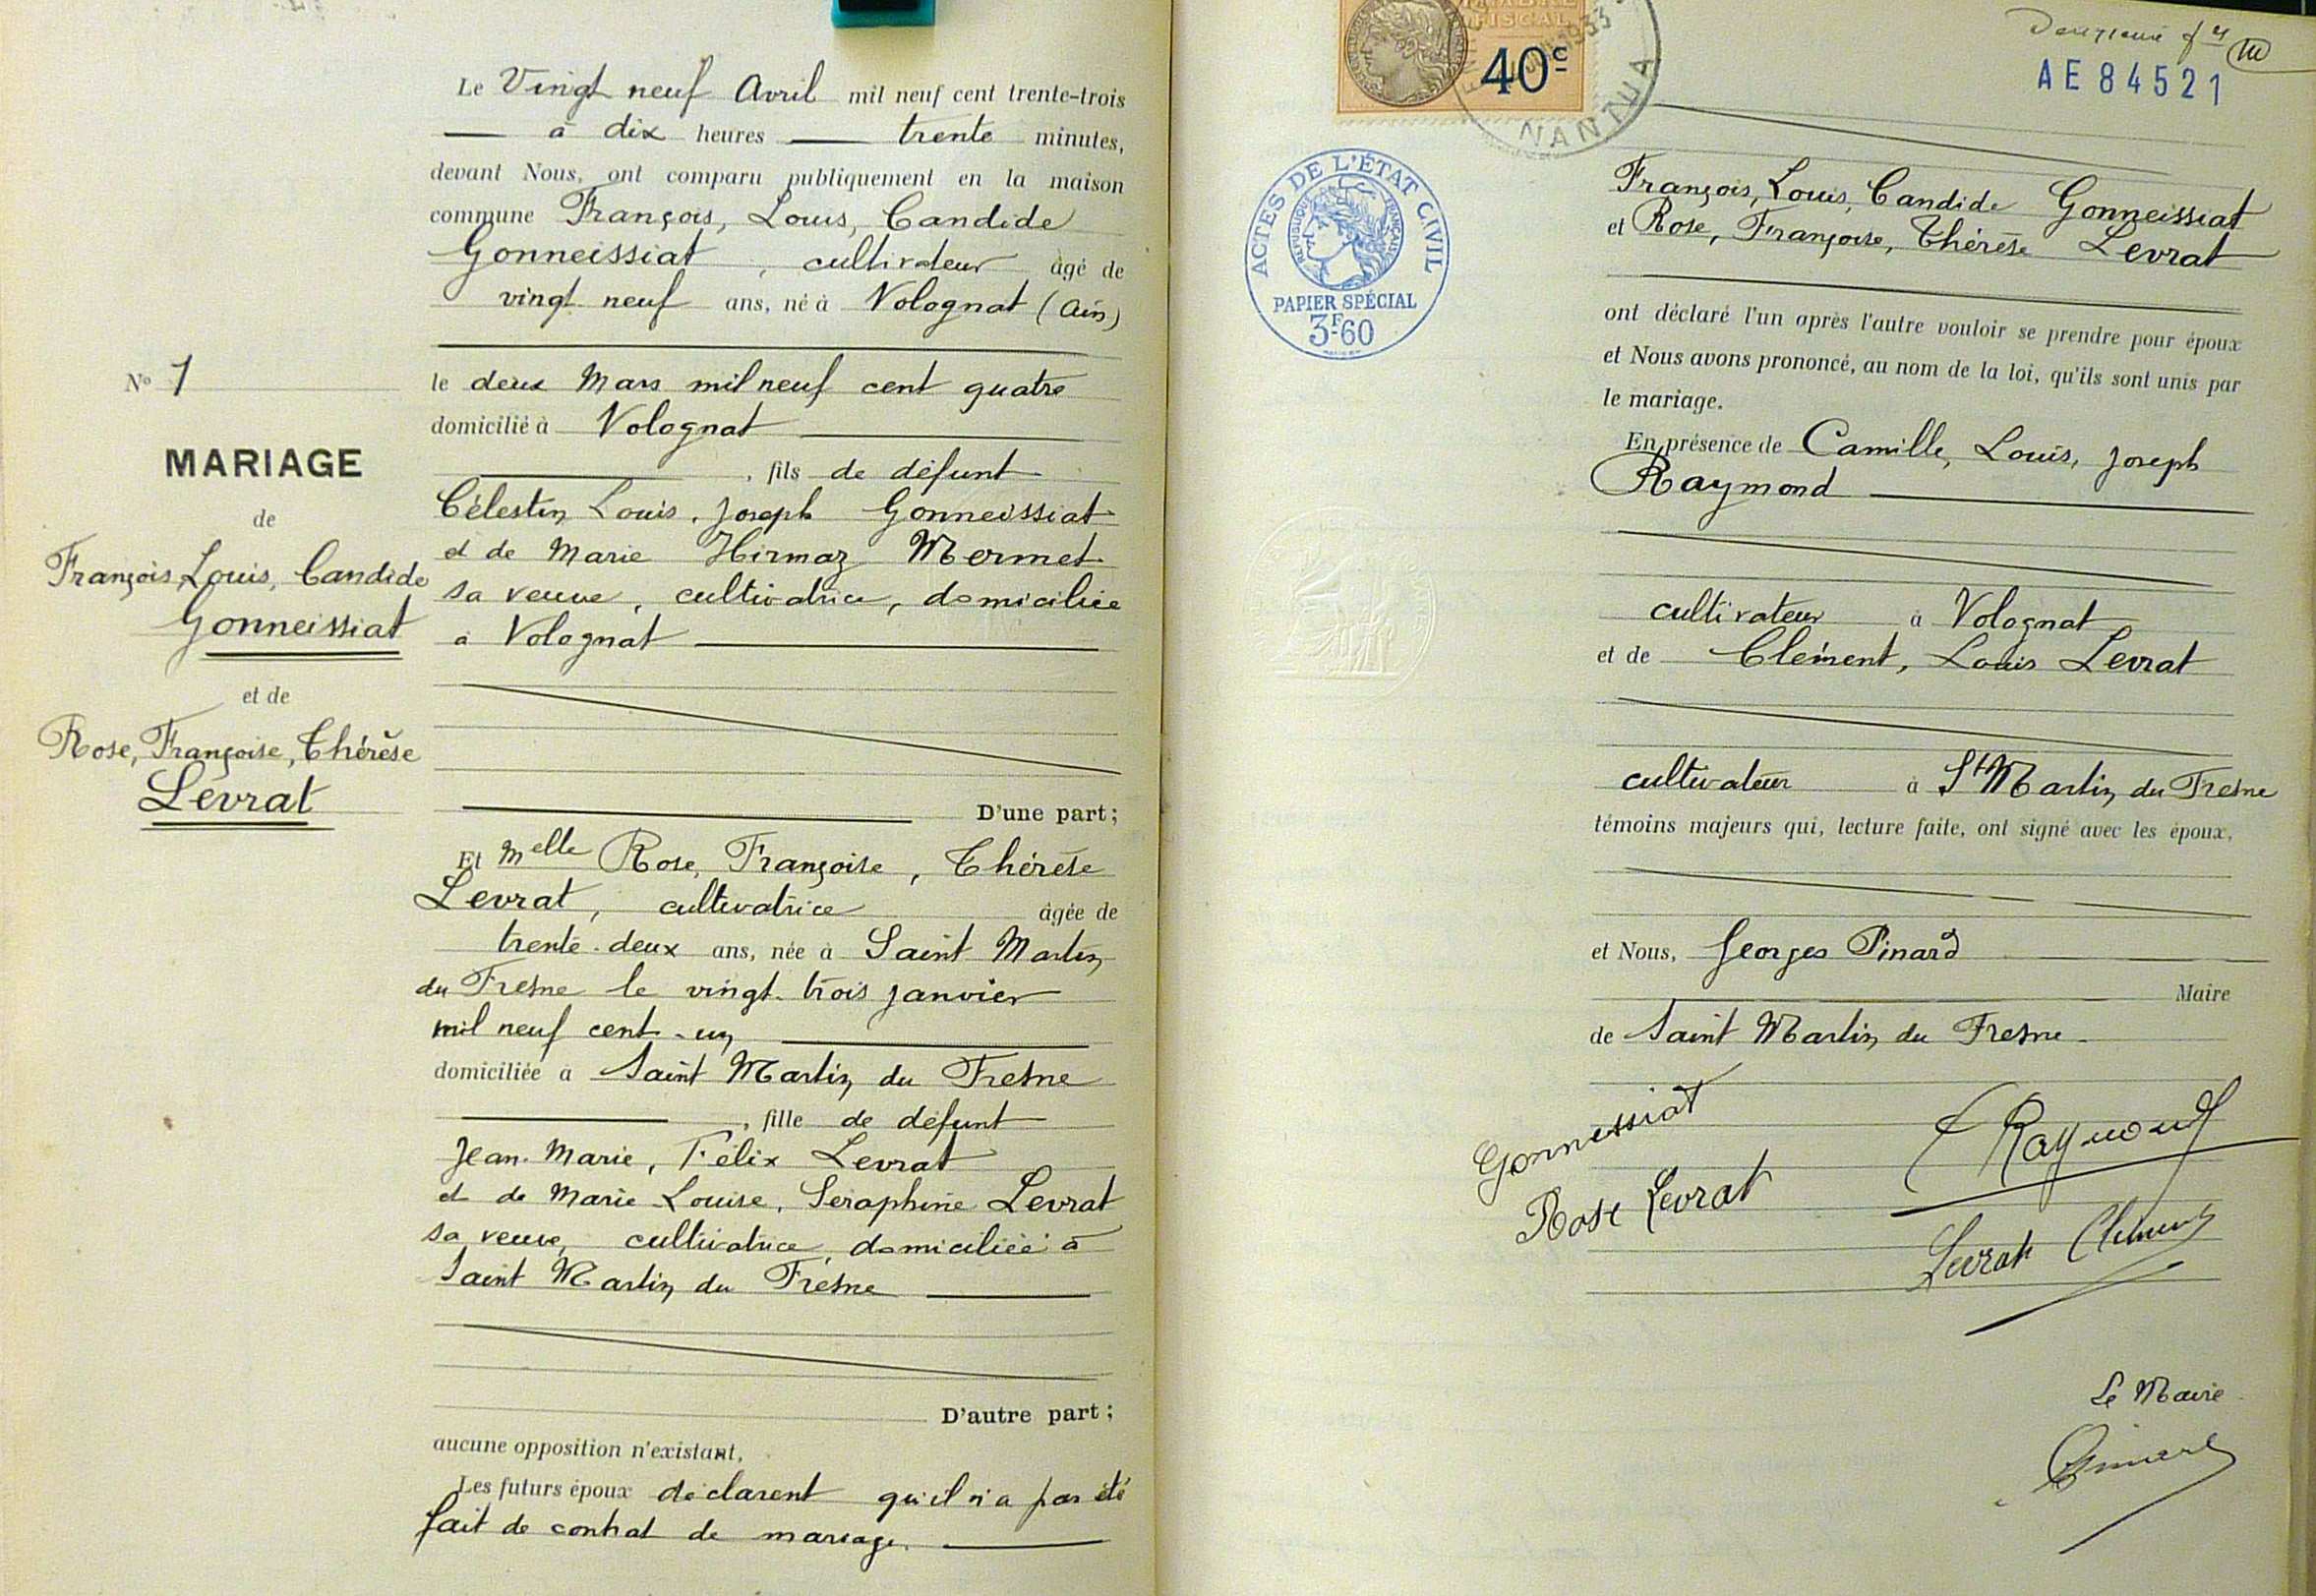 N° 1
MARIAGE
de
François, Louis, Candide
Gonneissiat
et de
Rose, Françoise, Thérèse
Levrat
Le Vingt neuf Avril mil neuf cent trente-trois
à dix heures trente minutes,
devant Nous, ont comparu publiquement en la maison
commune François, Louis, Candide
Gonneissiat, cultivateur âgé de
vingt neuf ans, né à Volognat (Ain)
le deux Mars mil neuf cent quatre
domicilié à Volognat
, fils de défunt
Célestin, Louis, Joseph Gonneissiat
et de Marie Hirmaz Mermet
sa veuve, cultivatrice, domiciliée
à Volognat
D'une part;
Et Melle Rose, Françoise, Thérèse
Levrat, cultivatrice âgée de
trente-deux ans, née à Saint Martin
du Fresne le vingt-trois janvier
mil neuf cent-un
domiciliée à Saint Martin du Fresne
, fille de défunt
Jean-Marie, Félix Levrat
et de Marie-Louise, Séraphine Levrat
sa veuve, cultivatrice, domiciliée à
Saint Martin du Fresne
D'autre part;
aucune opposition n'existant,
Les futurs époux déclarent qu'il n'a pas été
fait de contrat de mariage.
FISCAL
40c
1933
NANTUA
AE 84521
ACTES DE L'ÉTAT CIVIL
RÉPUBLIQUE FRANÇAISE
PAPIER SPÉCIAL
3F60
François, Louis, Candide Gonneissiat
et Rose, Françoise, Thérèse Levrat
ont déclaré l'un après l'autre vouloir se prendre pour époux
et Nous avons prononcé, au nom de la loi, qu'ils sont unis par
le mariage.
En présence de Camille, Louis, Joseph
Raymond
cultivateur à Volognat
et de Clément, Louis Levrat
cultivateur à St Martin du Fresne
témoins majeurs qui, lecture faite, ont signé avec les époux,
et Nous, Georges Pinard
Maire
de Saint Martin du Fresne
Gonnessiat
C Raymond
Rose Levrat
Levrat Clément
Le Maire
Pinard